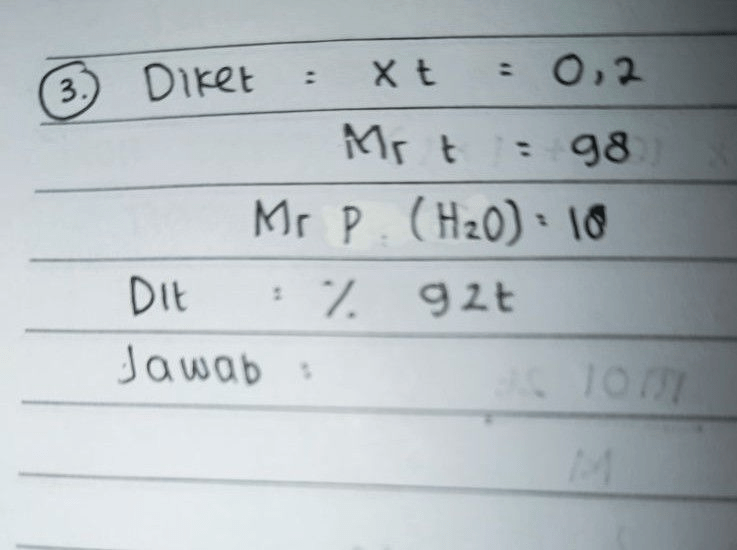 3. Diket : Xt = 0,2
Mr t = 98
Mr P. (H2O) = 18
Dit : % gzt
Jawab :